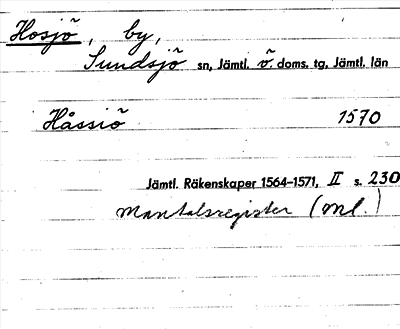 Hosjö, by,
Sundsjö sn, Jämtl. ö. doms. tg, Jämtl. län
Håssiö 1570
Jämtl. Räkenskaper 1564–1571, II s. 230
Mantalsregister (Ml.)